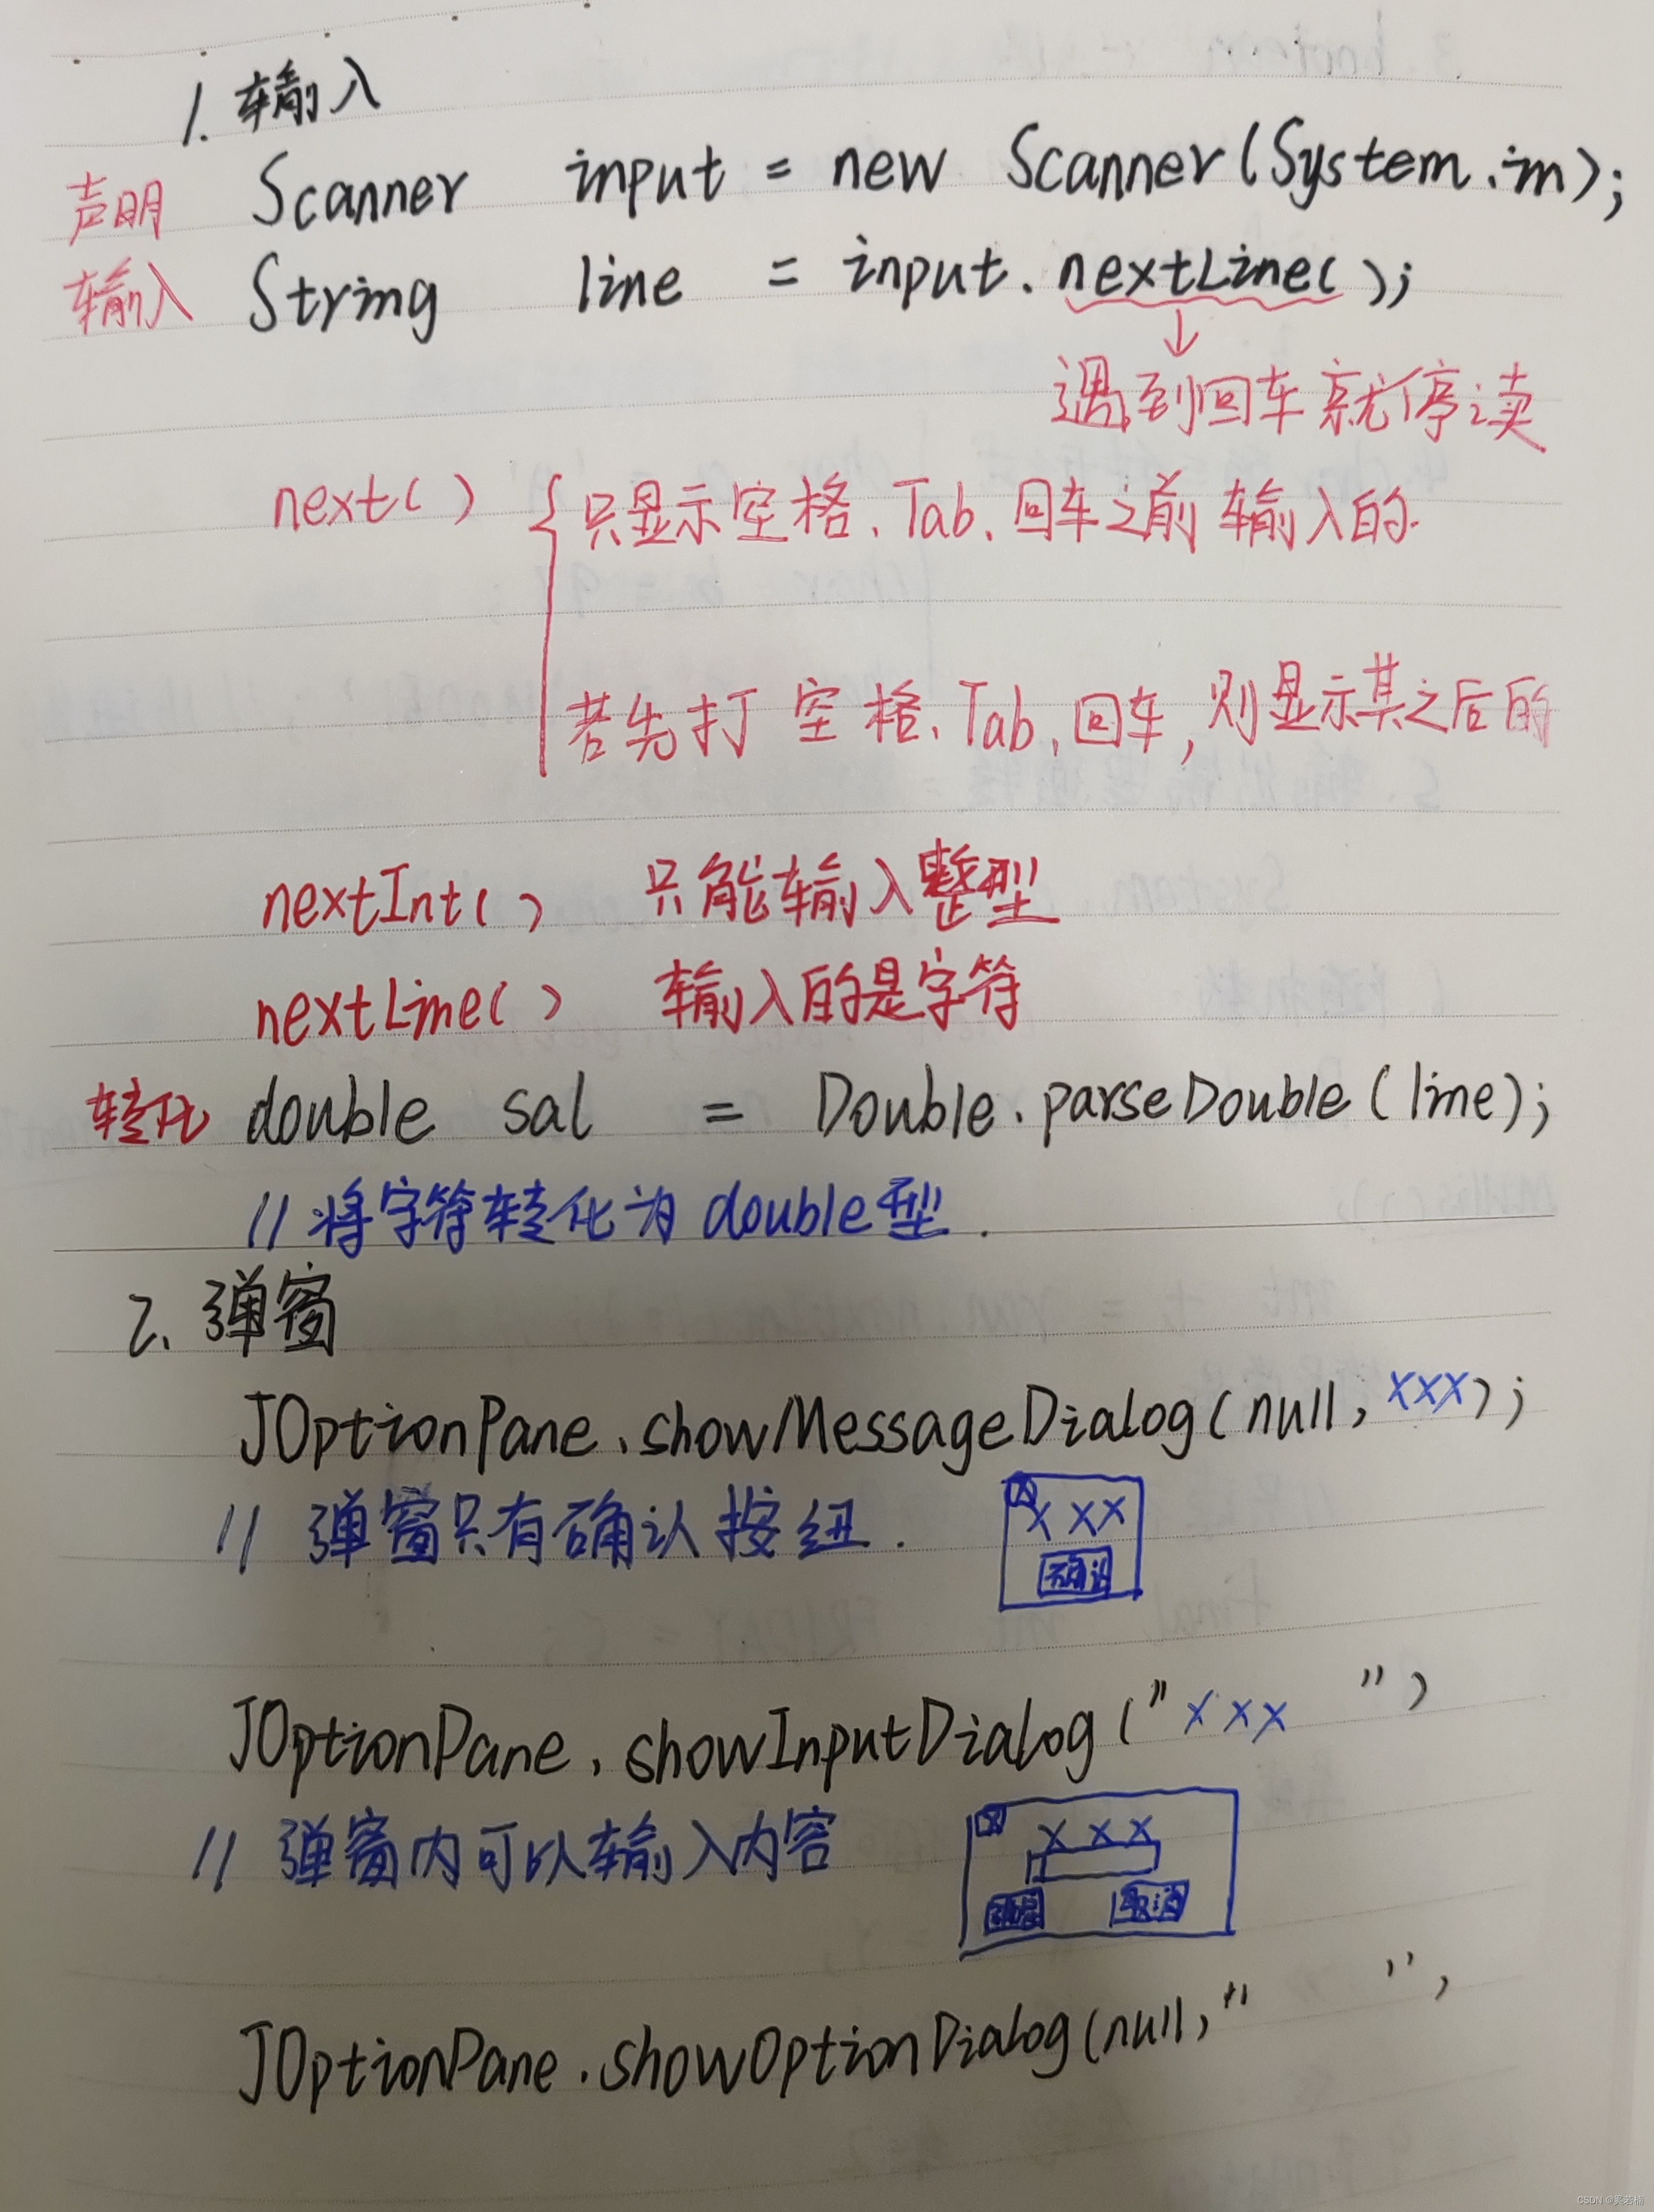 1. 输入
声明 Scanner input = new Scanner(System.in);
输入 String line = input.nextLine();
↓
遇到回车就停读
next() { 只显示空格、Tab、回车之前输入的.
若先打空格、Tab、回车,则显示其之后的
nextInt() 只能输入整型
nextLine() 输入的是字符
转化 double sal = Double.parseDouble(line);
// 将字符转化为double型.
2. 弹窗
JOptionPane.showMessageDialog(null, xxx);
// 弹窗只有确认按纽.
x
x xx
确认
JOptionPane.showInputDialog("xxx ")
// 弹窗内可以输入内容
x
x x x
取消
JOptionPane.showOptionDialog(null," ",